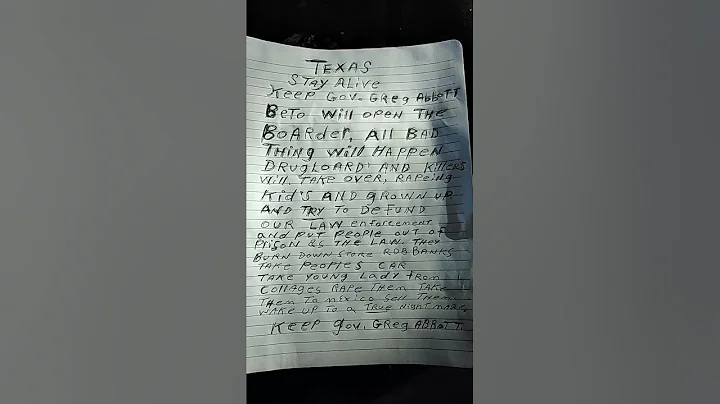 TEXAS
STAY ALIVE
KEEP GOV. GREG AbboTT
BETO Will OPEN THE
BOARder, All BAD
THING Will HAPPEN
DRUGLOARD' AND KillERS
Will TAKE OVER, RAPEING
Kid'S AND GROWN UP
AND TRY TO DEFUND
OUR LAW enforcement
and PUT PEOPLE OUT OF
PRISON &S THE LAW. THEY
BURN DOWN STORE ROB BANKS
TAKE PEOPLES CAR
TAKE YOUNG LADY from
COLLAGES RAPE THEM TAKE
THEM TO MEXICO SELL THEM
WAKE UP TO A TRUE NIGHT MARE.
KEEP gov. GREG ABBOTT.